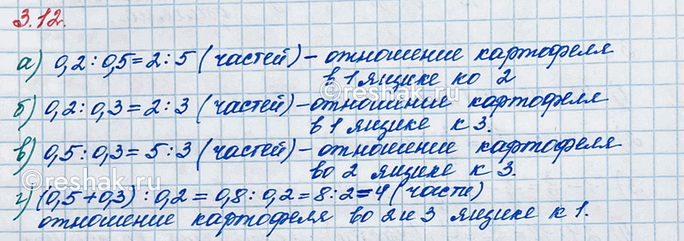 3.12.
а) 0,2 : 0,5 = 2 : 5 (частей) – отношение картофеля
в 1 ящике ко 2
б) 0,2 : 0,3 = 2 : 3 (частей) – отношение картофеля
в 1 ящике к 3.
в) 0,5 : 0,3 = 5 : 3 (частей) – отношение картофеля
во 2 ящике к 3.
г) (0,5 + 0,3) : 0,2 = 0,8 : 0,2 = 8 : 2 = 4 (части)
отношение картофеля во 2 и 3 ящике к 1.
©reshak.ru
©reshak.ru